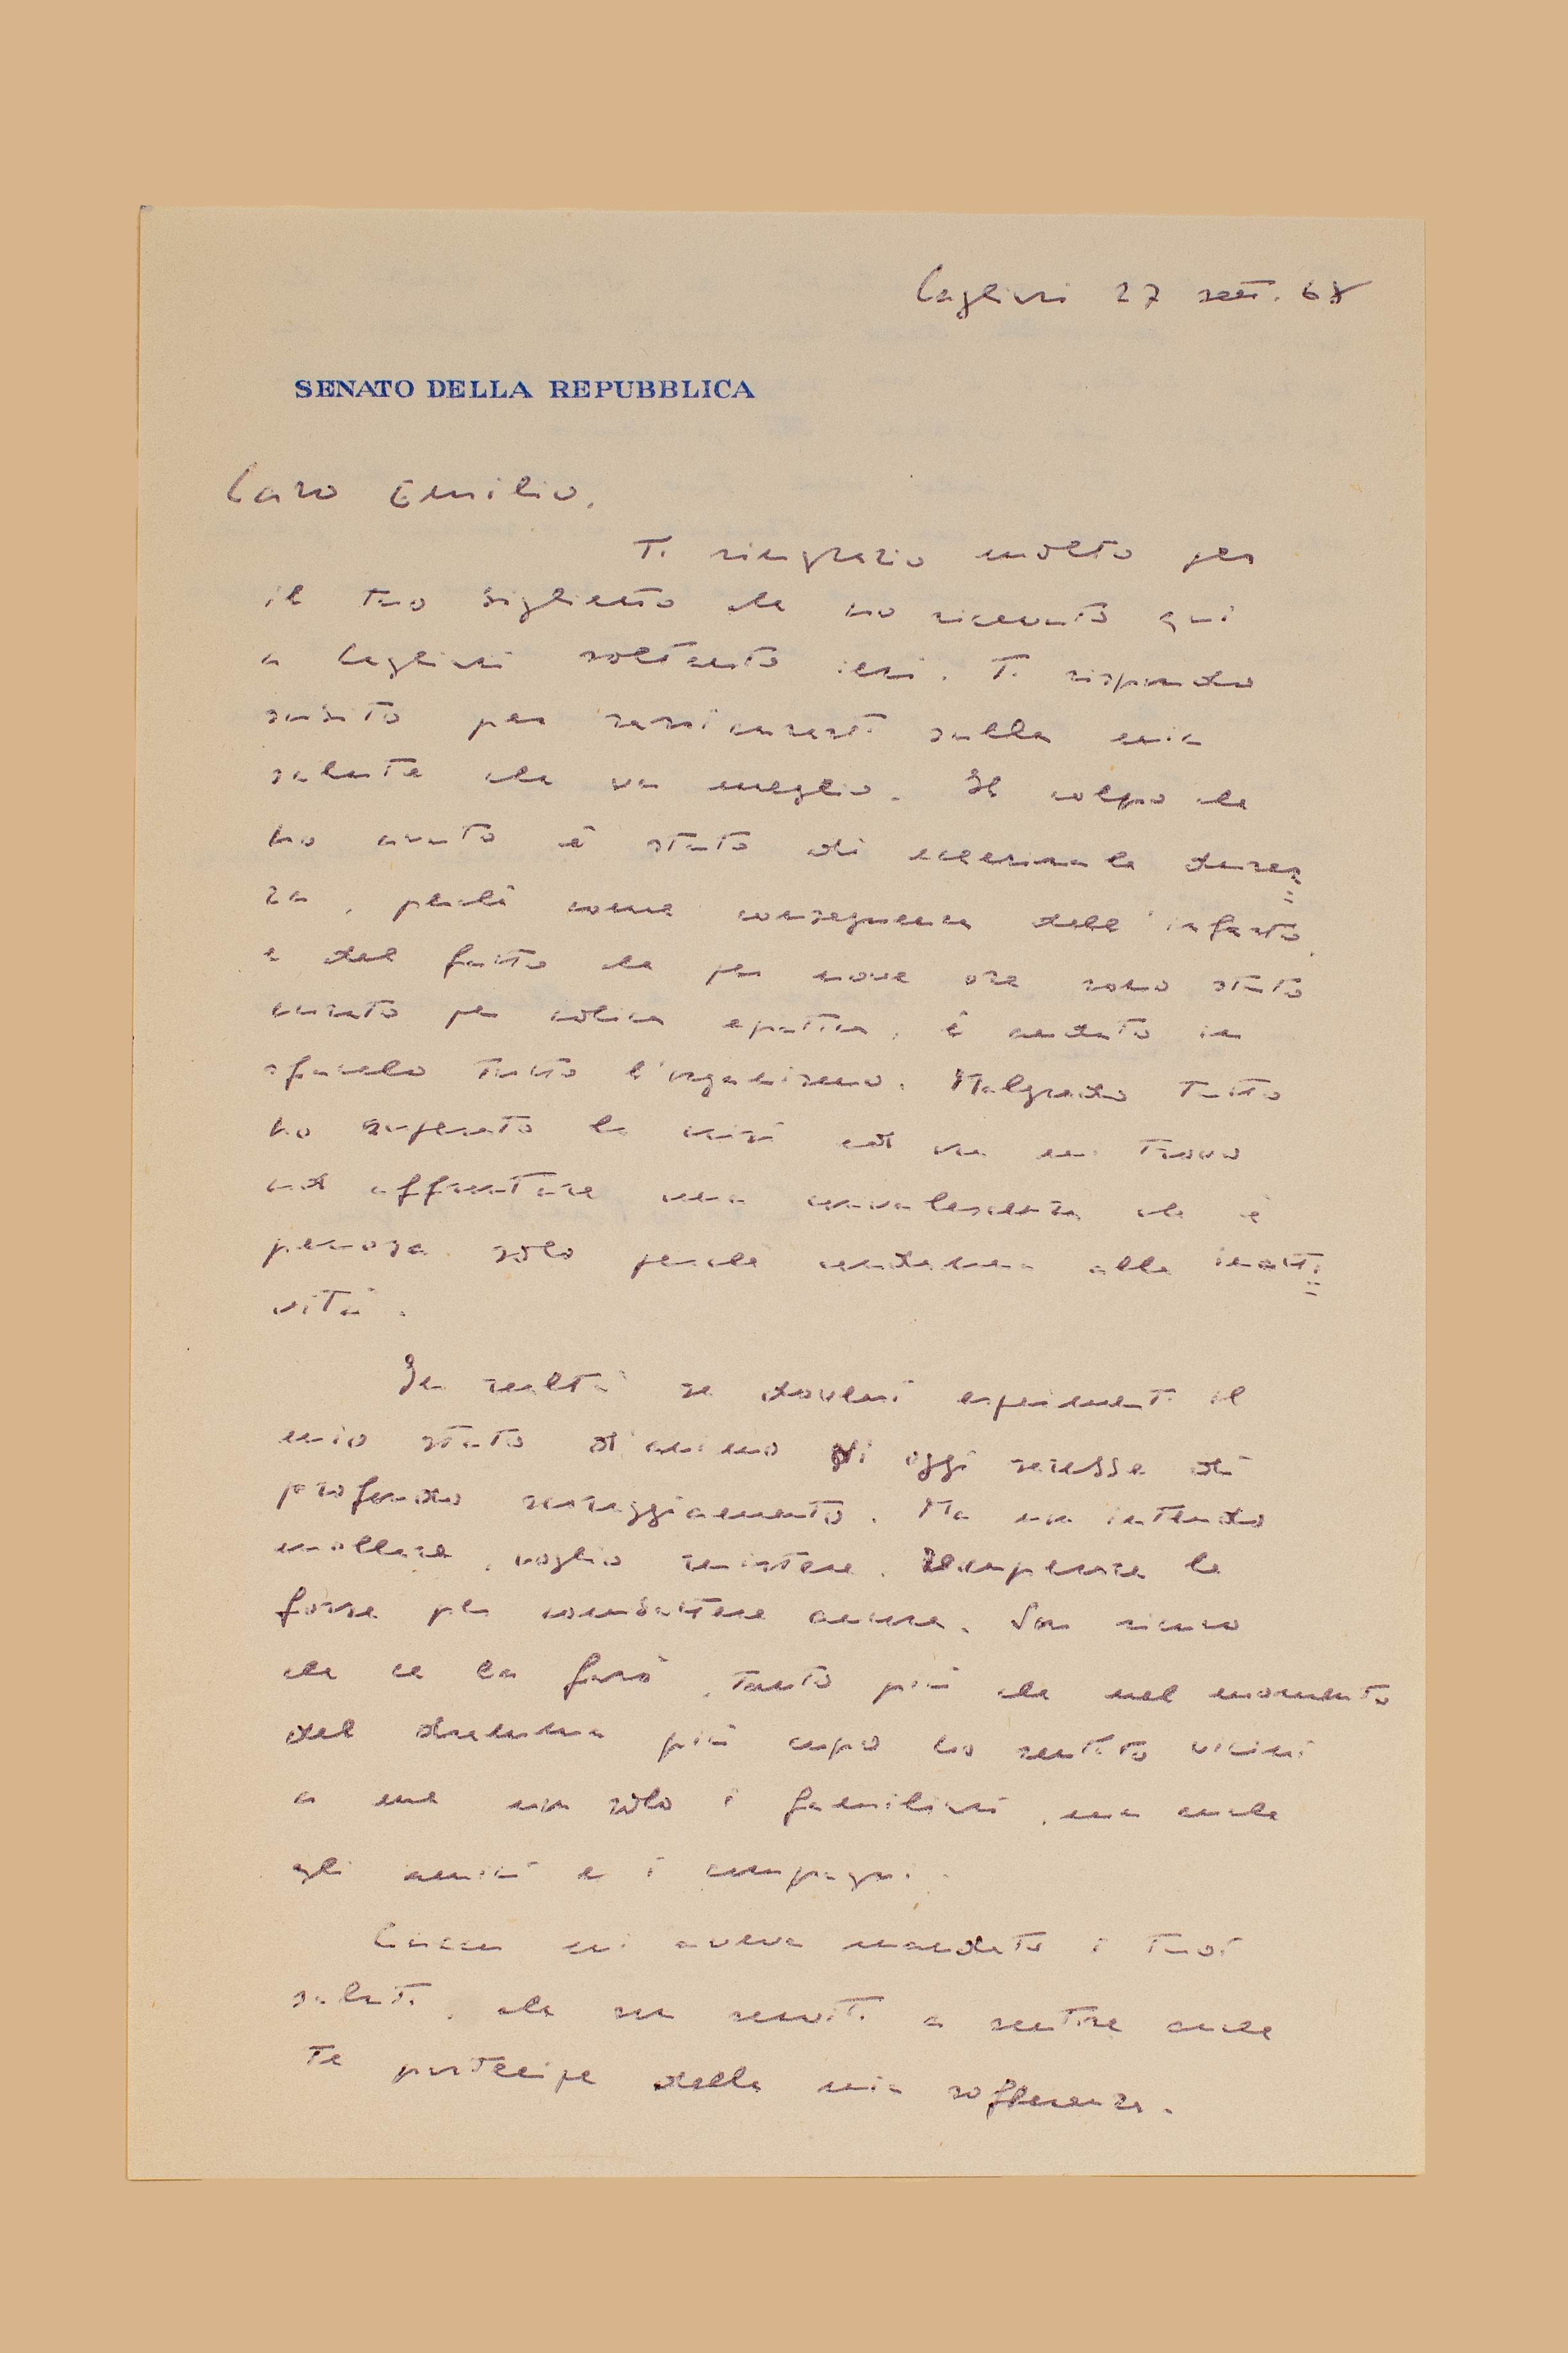 Cagliari 27 sett. 68
SENATO DELLA REPUBBLICA
Caro Emilio,
Ti ringrazio molto per
il tuo biglietto che ho ricevuto qui
a Cagliari soltanto ieri. Ti rispondo
subito per rassicurarti sulla mia
salute che va meglio. Il colpo che
ho avuto è stato di eccezionale durez=
za, perché come conseguenza dell'infarto,
e del fatto che per nove ore sono stato
curato per colica epatica, è andato in
sfacelo tutto l'organismo. Malgrado tutto
ho superato la crisi ed ora mi trovo
ad affrontare una convalescenza che è
penosa solo perché condanna alla inatti=
vità.
In realtà se dovessi esprimerti il
mio stato d'animo di oggi sarebbe di
profondo scoraggiamento. Ma non intendo
mollare, voglio resistere. Recuperare le
forze per combattere ancora. Son sicuro
che ce la farò, tanto più che nel momento
del dramma più cupo ho sentito vicini
a me non solo i familiari, ma anche
gli amici e i compagni.
mi aveva mandato i tuoi
saluti, che son serviti a sentire anche
te partecipe della mia sofferenza.